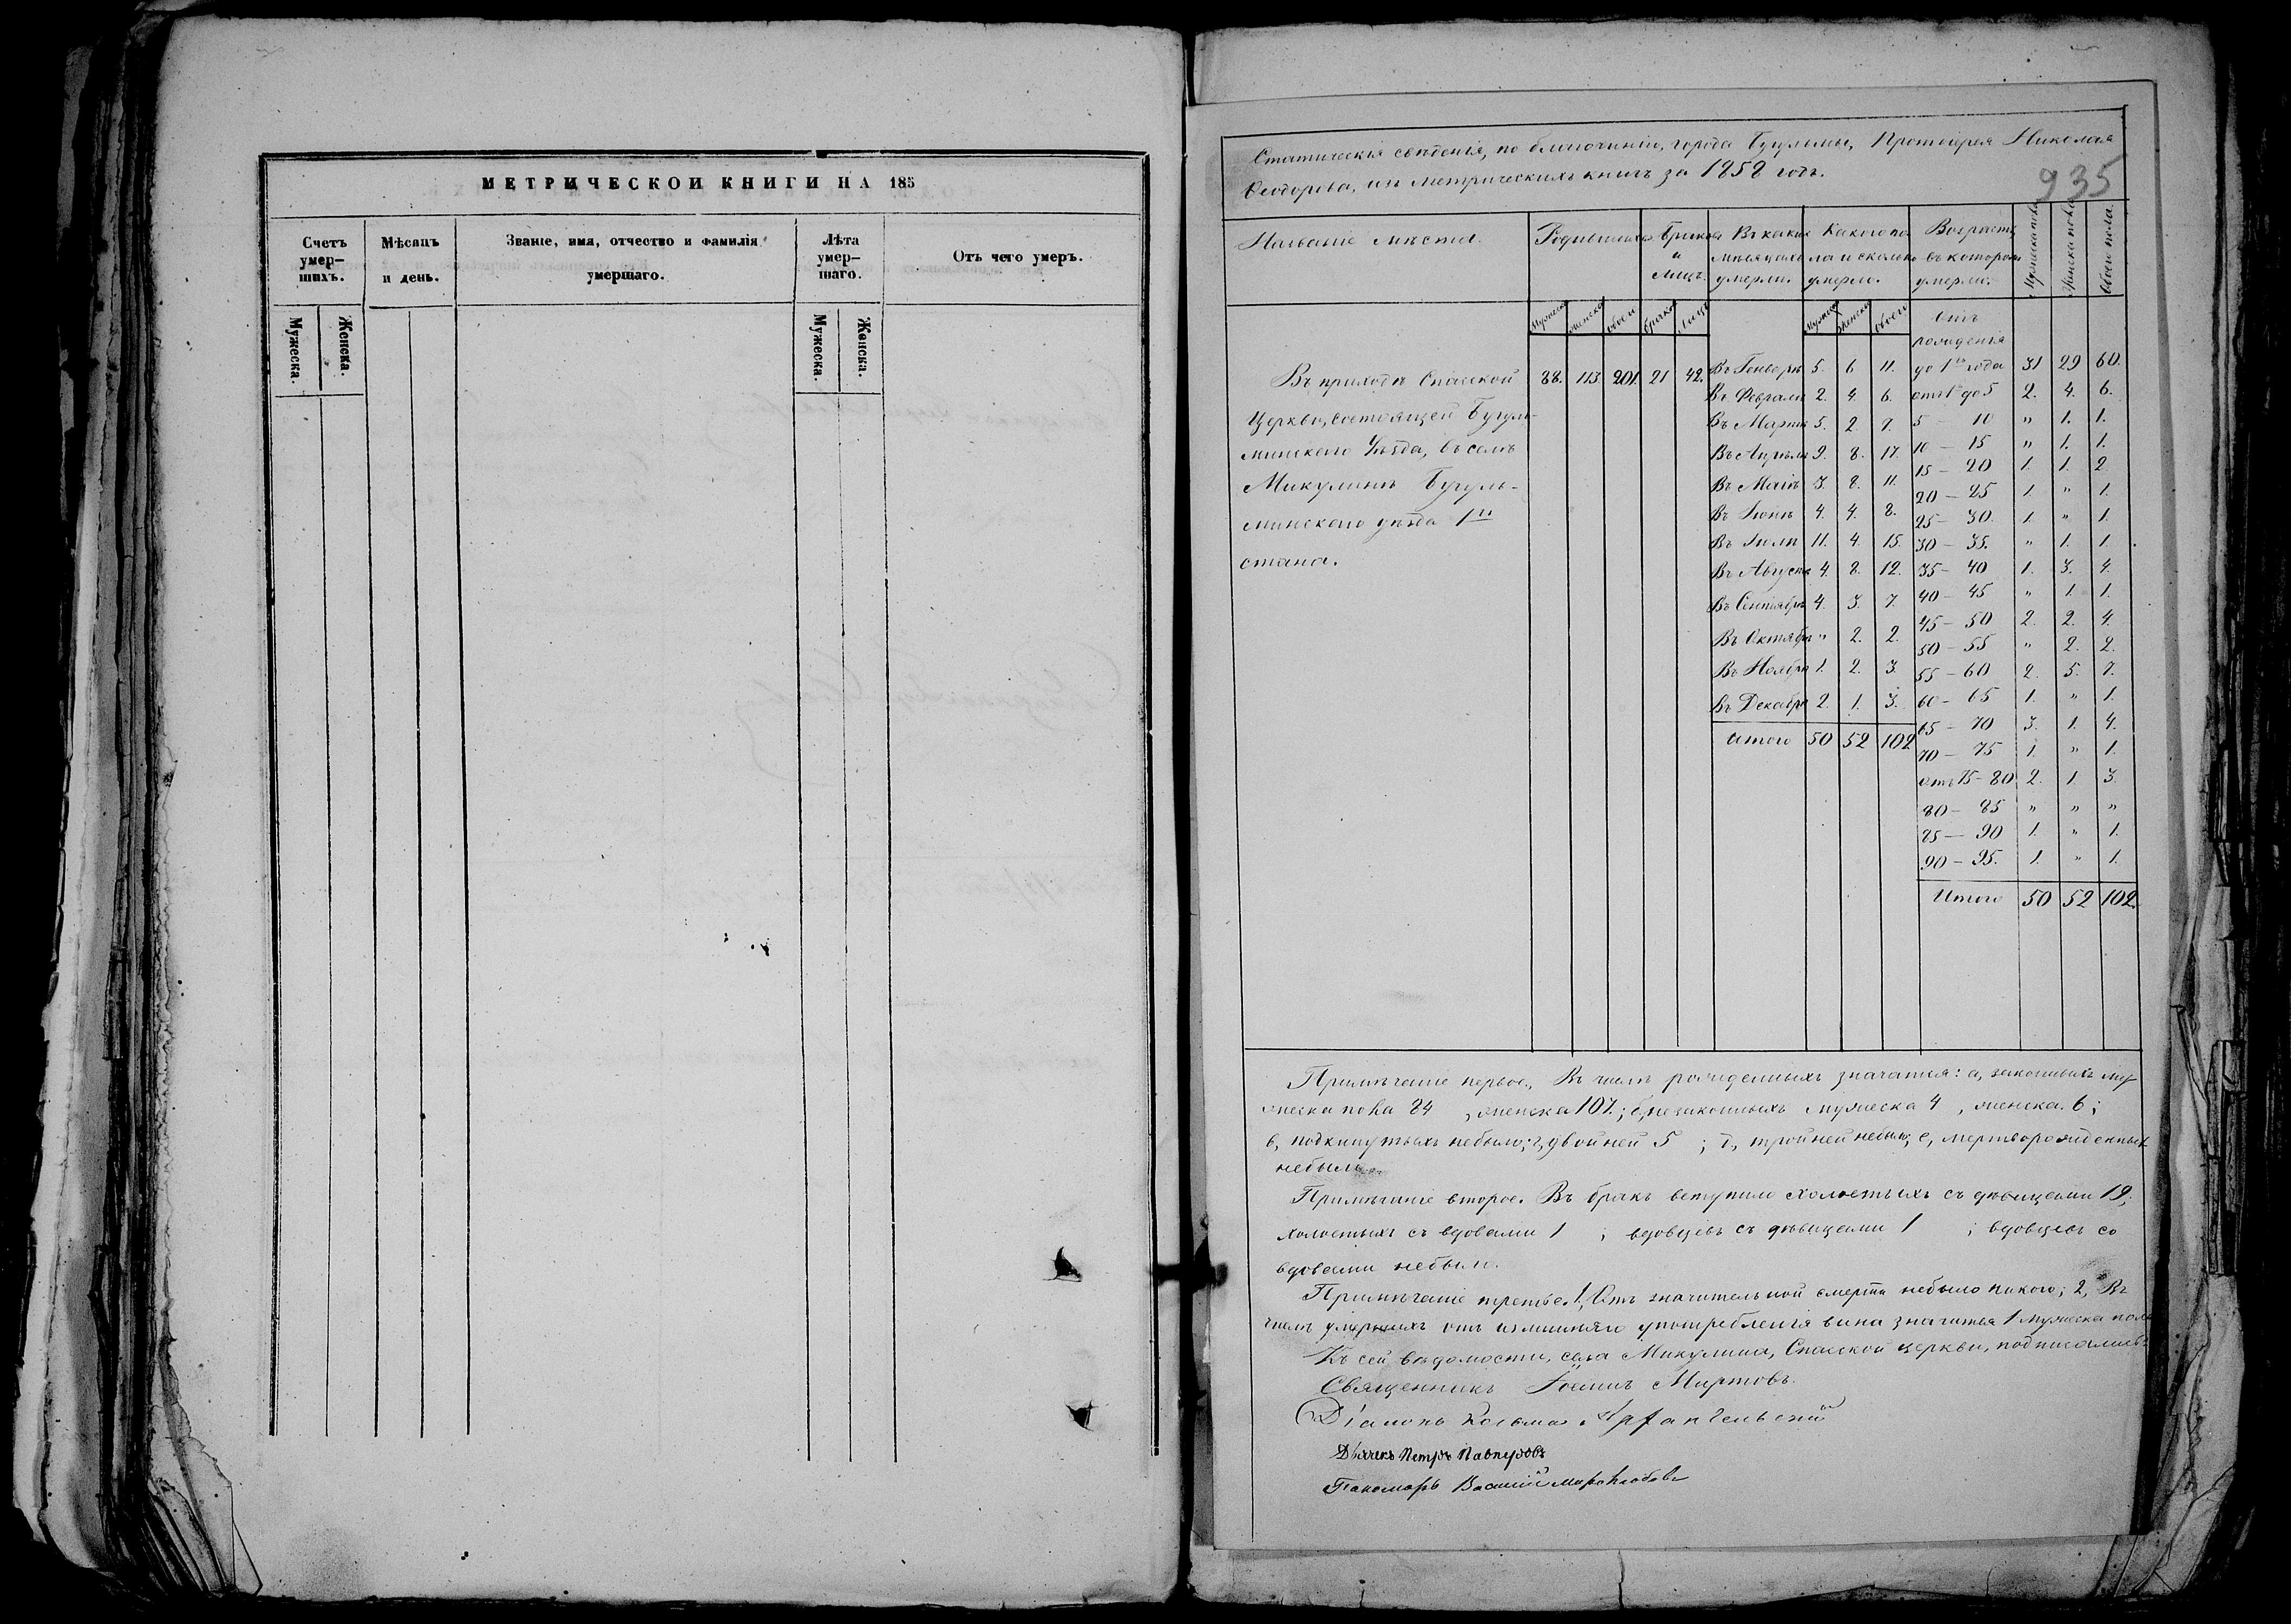 МЕТРИЧЕСКОЙ КНИГИ НА 185
Счетъ умер-шихъ.
Мѣсяцъ и день.
Званіе, имя, отчество и фамилія умершаго.
Лѣта умер-шаго.
Отъ чего умеръ.
Мужеска.
Женска.
Мужеска.
Женска.
Статическія свѣденія, по благочинію, города Бугульмы, Протоіерея Николая
Феодорова, изъ метрическихъ книгъ за 1858 годъ.
935
Названіе мѣста.
Родившихся
Браковъ и лицъ.
Въ какихъ мѣсяцахъ умерли.
Какого пола и сколько умерло.
Возрастъ, въ которомъ умерли.
Мужеска пола
Женска пола
Обоего пола.
Мужеска
женска
обоего
браковъ
лицъ
Мужеска
Женска
обоего
Отъ рожденія
Въ приходѣ Спасской 88. 113. 201. 21 42.
Церкви, состоящей Бугуль-
минскаго Уѣзда, въ селѣ
Микулинѣ Бугуль-
минскаго уѣзда 1го
стана.
Въ Генварѣ 5. 6 11.
Въ Февралѣ 2. 4. 6.
Въ Мартѣ 5. 2. 7.
Въ Апрѣлѣ 9. 8. 17.
Въ Маіѣ 3. 8. 11.
Въ Іюнѣ 4. 4. 8.
Въ Іюлѣ 11. 4. 15.
Въ Августѣ 4. 8. 12.
Въ Сентябрѣ 4. 3. 7.
Въ Октябрѣ " 2. 2.
Въ Ноябрѣ 1. 2. 3.
Въ Декабрѣ 2. 1. 3.
Итого 50 52 102
до 1го года 31 29 60.
отъ 1 до 5 2. 4. 6.
5 - 10 " 1. 1.
10 - 15 " 1. 1.
15 - 20 1. 1. 2
20 - 25 1. " 1.
25 - 30. 1. " 1.
30 - 35. " 1. 1.
35 - 40 1. 3. 4.
40 - 45 " 1. 1.
45 - 50 2. 2. 4.
50 - 55 " 2. 2.
55 - 60 2. 5. 7.
60 - 65 1. " 1.
65 - 70 3. 1. 4.
70 - 75 1. " 1.
отъ 75 - 80 2. 1. 3.
80 - 85 " " "
85 - 90 1. " 1.
90 - 95. 1. " 1.
Итого 50 52 102.
Примѣчаніе первое, Въ числѣ рожденныхъ значатся: а, законныхъ му
жеска пола 84, женска 107.; б, незаконныхъ мужеска 4, женска. 6;
в, подкинутыхъ небыло; г, двойней 5; д, тройней небыло; е, мертворожденныхъ
небыло.
Примѣчаніе второе. Въ бракъ вступило холостыхъ съ дѣвицами 19;
холостыхъ съ вдовами 1; вдовцевъ съ дѣвицами 1; вдовцевъ со
вдовами небыло.
Примѣчаніе третье. 1, Отъ значительной смерти небыло никого; 2, Въ
числѣ умершихъ отъ излишняго употребленія вина значится 1 мужеска пола
Къ сей вѣдомости, села Микулина, Спасской церкви, подписались
Священникъ Іоаннъ Миртовъ.
Діаконъ Косьма Архангельскій
Дьячекъ Петръ Павперовъ
Пономарь Василій Миролюбовъ